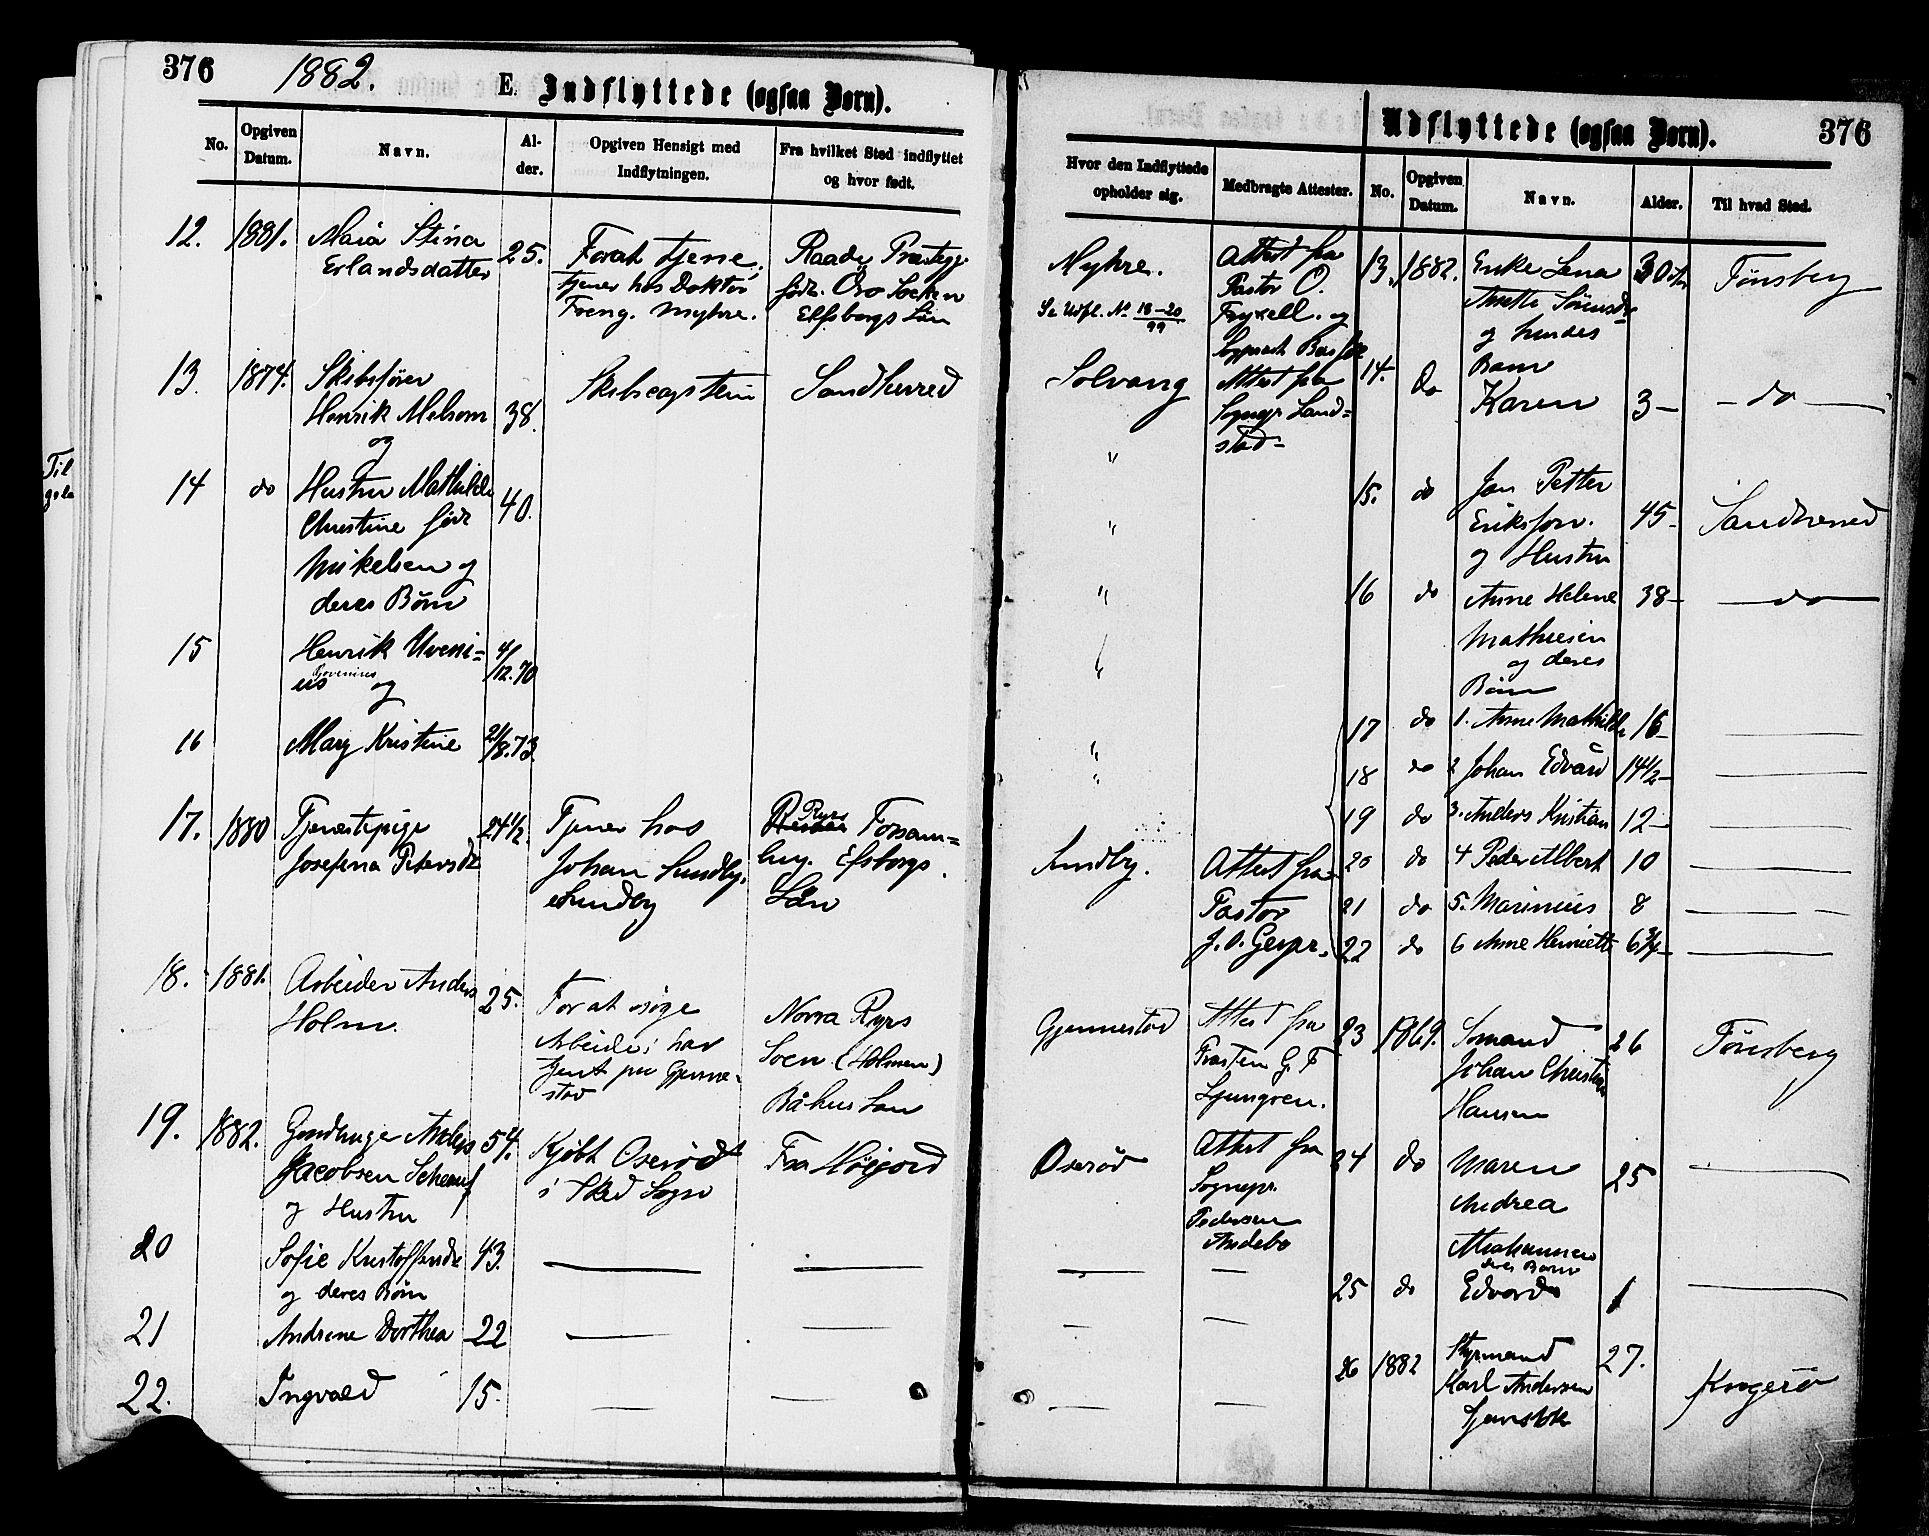 376
1882.
E. Indflyttede (ogsaa Børn).
No.
Opgiven Datum.
Navn.
Al-
der.
Opgiven Hensigt med
Indflytningen.
Fra hvilket Sted indflyttet
og hvor født.
Hvor den Indflyttede
opholder sig.
Medbragte Attester.
12.
1881.
Maria Stina
Erlandsdatter
25.
For at tjene.
tjener hos Doktor
Foeng. Myhre.
Raade
født. Öro Socken
Elfsborgs Län
Nyhre.
Se Udfl. No 18-20
99
Attest fra
Pastor O.
Fryxell. og
13.
1874.
Skibsfører
Henrik Melsom
og
38.
Sandherred
Solvang
Attest fra
Sognepr. Land-
stad-
14
do
Hustru Mathilde
Christine født
Mikelsen og
deres Børn
40.
"
"
15
Henrik Uveni-
us og
4/12.70
"
16
Mary Kristine
21/8.73.
"
17.
1880
Tjenestepige
Josefina Petersdt
24½.
Tjener hos
Johan Sundby.
Sundby
Ryrs Forsam-
ling. Elfsborgs
Län
Sundby.
Attest fra
Pastor
18.
1881.
Arbeider Anders
Holm.
25.
For at søge
Arbeide; har
tjent paa Gjenne-
stad
Norra Ryrs
Socn (Holmen)
Båhus Lan
Gjennestad
Attest fra
Ljungren.
19.
1882.
Gaardbruger Anders
Jacobsen
og Hustru
54.
Kjøbt Oserød
i Sked Sogn
Fra Høijord
Oserød
Attest fra
Sognepr.
Pedersen
Andebo
20
Sofie Kristoffersdt
og deres Børn
43.
21
Andrine Dorthea
22
22.
Ingvald
15.
Udflyttede (ogsaa Børn).
376
No.
Opgiven
Datum.
Navn.
Alder.
Til hvad Sted.
13.
1882.
Enke Lena
Anette Sørensdt
og hendes
Barn
30
Tønsberg
14.
do
Karen
3-
-do-
15.
do
Jan Petter
Eriksson.
og Hustru
45-
Sandherred
16
do
Anne Helene
Mathiesen
og deres
Børn
38-
-do-
17
do
1. Anne Mathilde
16-
18
do
2 Johan Edvard
14½-
19
do
3. Anders Kristian
12-
20
do
4 Peder Albert
10
21
do
5. Marinius
8
22
do
6 Anne Henriette
6¾-
23
1869.
Sømand
Johan Christian
Hansen
26
Tønsberg
24
do
Maren
Andrea
deres Barn
25
25
do
Edvard
1
26
1882
Styrmand
Karl Andersen
27.
Kragerø
Til